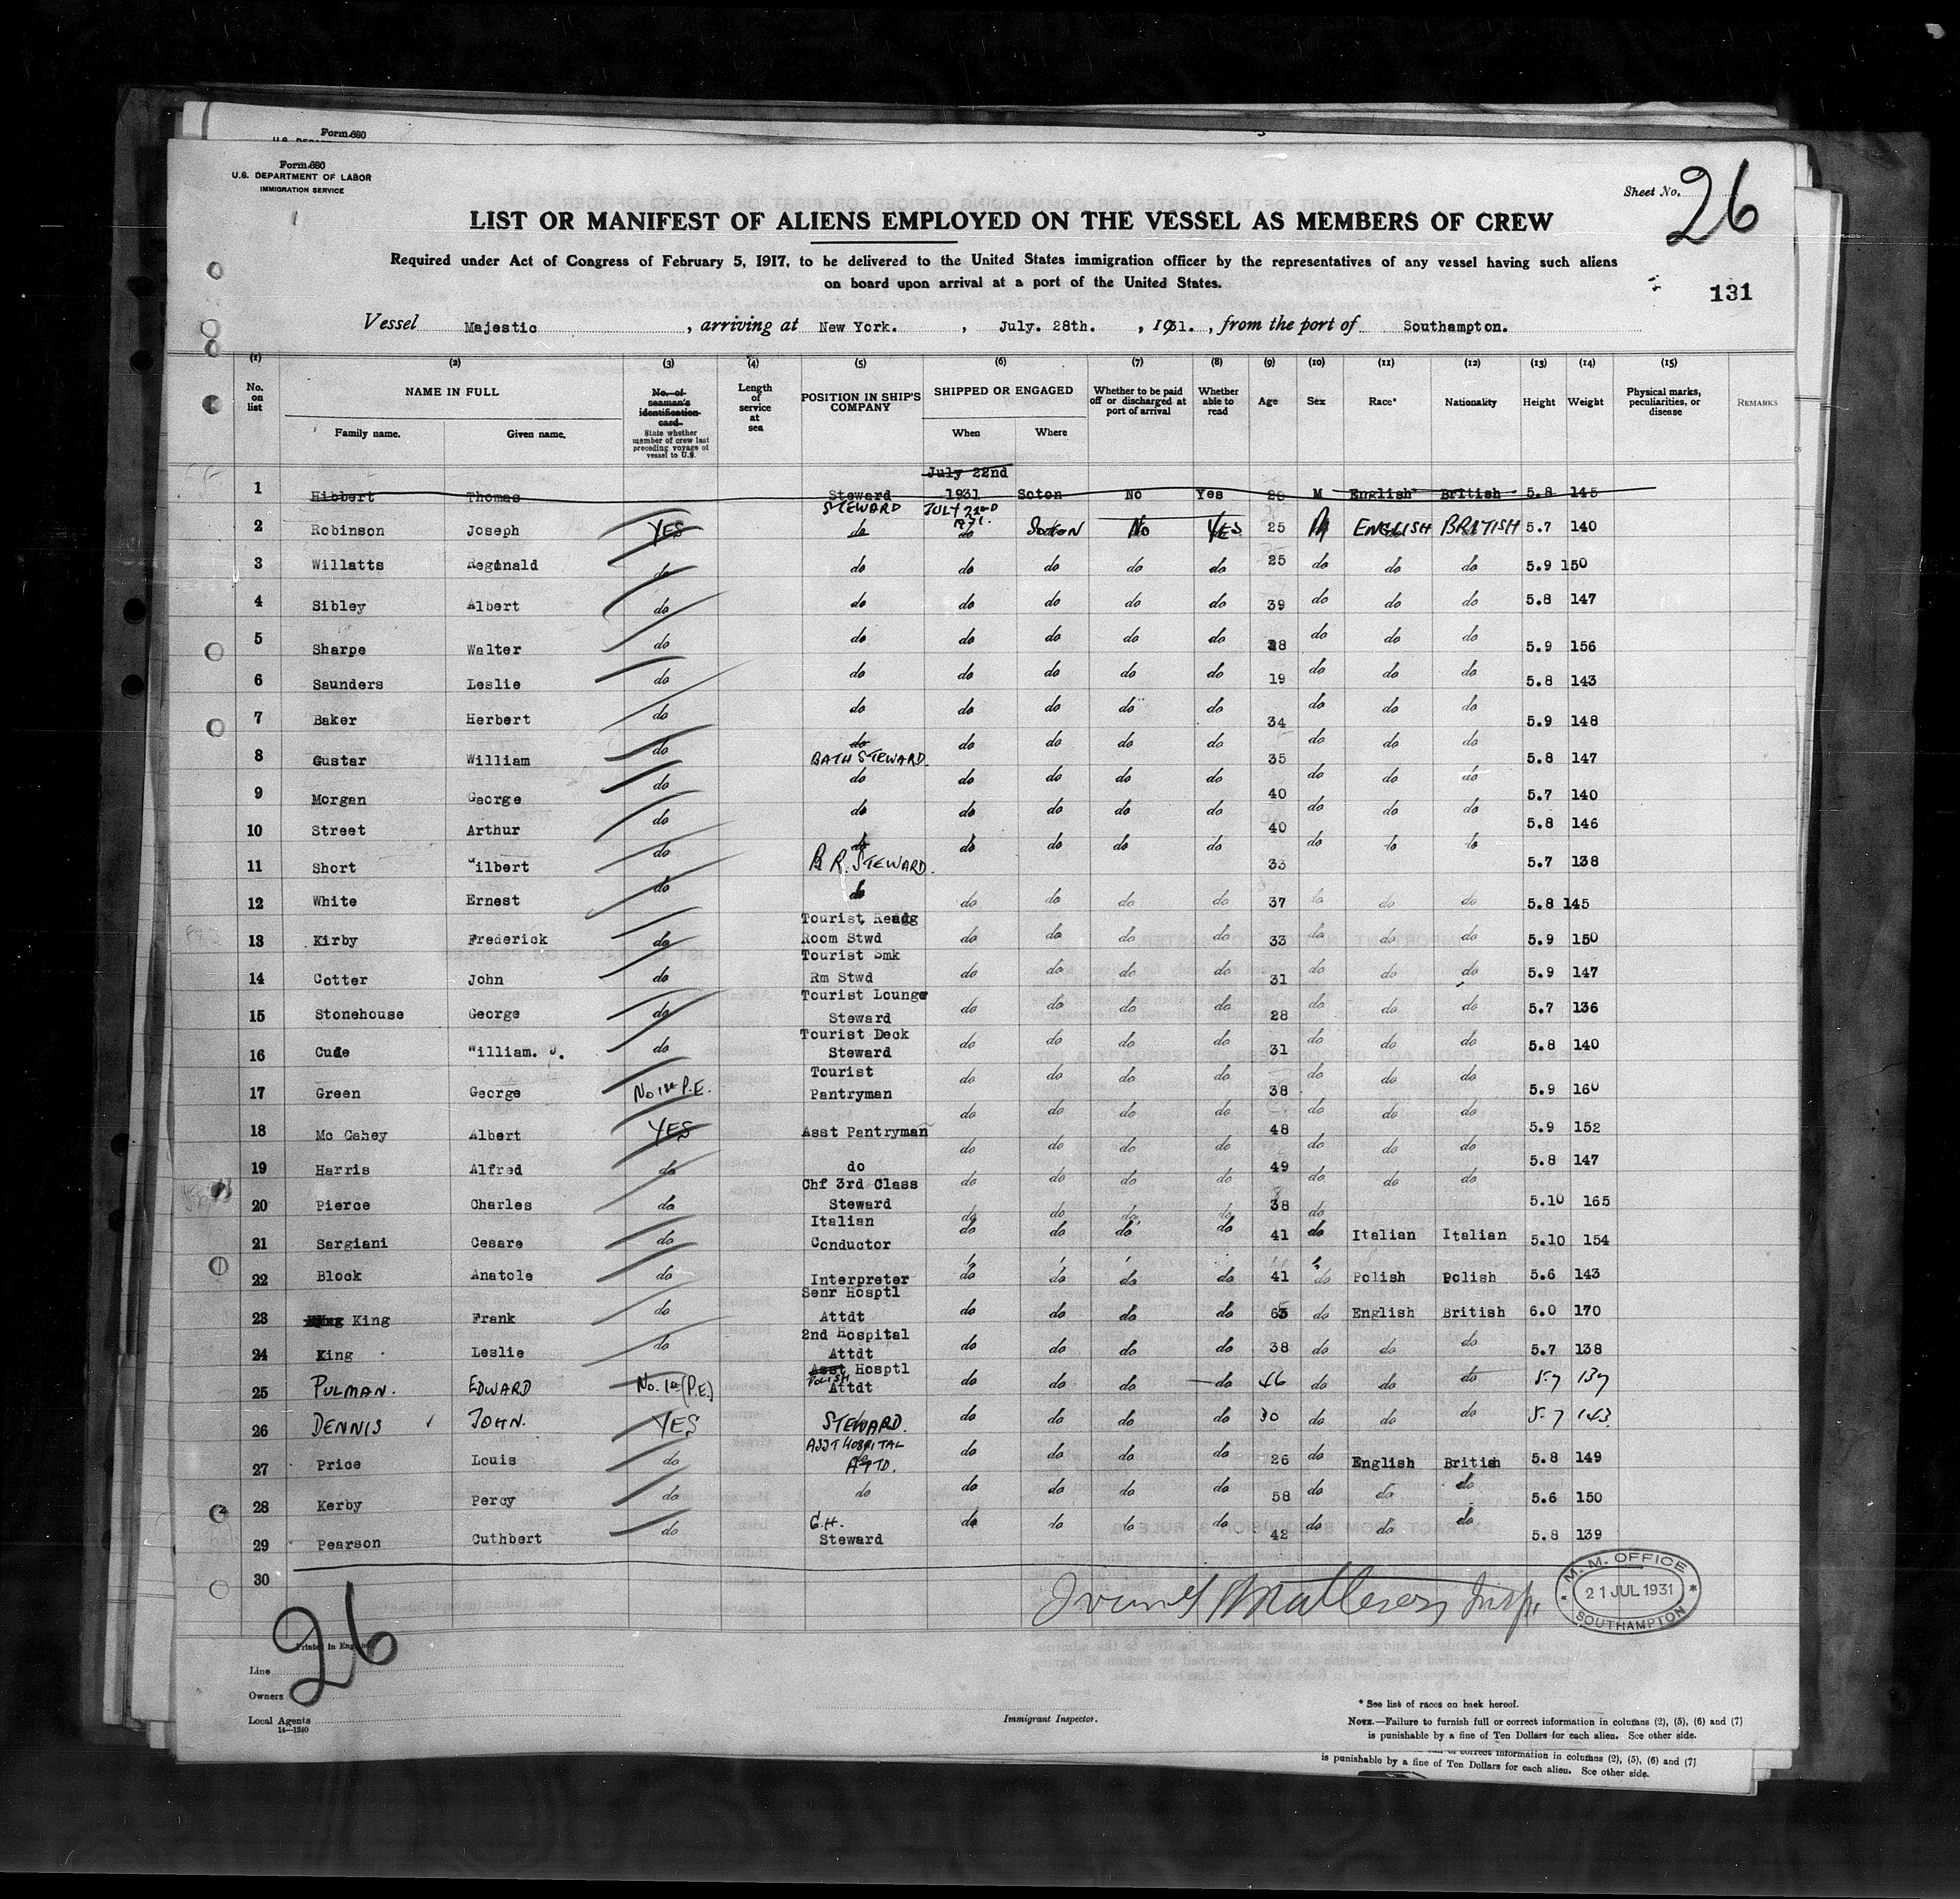 Form 680
U.S. DEPARTMENT OF LABOR
IMMIGRATION SERVICE
Sheet No. 26
LIST OR MANIFEST OF ALIENS EMPLOYED ON THE VESSEL AS MEMBERS OF CREW
Required under Act of Congress of February 5, 1917, to be delivered to the United States immigration officer by the representatives of any vessel having such aliens
on board upon arrival at a port of the United States.
131
Vessel Majestic, arriving at New York., July. 28th., 1931., from the port of Southampton.
(1) (2) (3) (4) (5) (6) (7) (8) (9) (10) (11) (12) (13) (14) (15)
No. on list NAME IN FULL Family name. Given name. No. of seaman's identification card State whether member of crew last preceding voyage of vessel to U.S. Length of service at sea POSITION IN SHIP'S COMPANY SHIPPED OR ENGAGED When Where Whether to be paid off or discharged at port of arrival Whether able to read Age Sex Race* Nationality Height Weight Physical marks, peculiarities, or disease REMARKS
1 Hibbert Thomas Steward July 22nd 1931 Soton No Yes M English British 5.8 145
2 Robinson Joseph YES STEWARD do JULY 22nd 1931. do Soton No YES 25 M ENGLISH BRITISH 5.7 140
3 Willatts Reginald do do do do do do 25 do do do 5.9 150
4 Sibley Albert do do do do do do 39 do do do 5.8 147
5 Sharpe Walter do do do do do do 28 do do do 5.9 156
6 Saunders Leslie do do do do do do 19 do do do 5.8 143
7 Baker Herbert do do do do do do 34 do do do 5.9 148
8 Gustar William do do BATH STEWARD. do do do do 35 do do do 5.8 147
9 Morgan George do do do do do do 40 do do do 5.7 140
10 Street Arthur do do do do do do 40 do do do 5.8 146
11 Short Wilbert do do B.R. STEWARD. do do do do 33 do do do 5.7 138
12 White Ernest do do do do do do 37 do do do 5.8 145
13 Kirby Frederick do Tourist Readg Room Stwd do do do do 33 do do do 5.9 150
14 Cotter John do Tourist Smk Rm Stwd do do do do 31 do do do 5.9 147
15 Stonehouse George do Tourist Lounge Steward do do do do 28 do do do 5.7 136
16 Cude William. J. do Tourist Deck Steward do do do do 31 do do do 5.8 140
17 Green George No 1st P.E. Tourist Pantryman do do do do 38 do do do 5.9 160
18 Mc Cahey Albert YES Asst Pantryman do do do do 48 do do do 5.9 152
19 Harris Alfred do do do do do do 49 do do do 5.8 147
20 Pierce Charles do Chf 3rd Class Steward do do do do 38 do do do 5.10 165
21 Sargiani Cesare do Italian Conductor do do do do 41 do Italian Italian 5.10 154
22 Block Anatole do Interpreter do do do do 41 do Polish Polish 5.6 143
23 King Frank do Senr Hosptl Attdt do do do do 63 do English British 6.0 170
24 King Leslie do 2nd Hospital Attdt do do do do 38 do do do 5.7 138
25 PULMAN. EDWARD No. 1st (P.E.) Asst Hosptl Attdt do do do do 46 do do do 5.7 137
26 DENNIS JOHN. YES STEWARD. do do do do 30 do do do 5.7 143
27 Price Louis do ASST HOSPITAL ATTD. do do do do 26 do English British 5.8 149
28 Kerby Percy do do do do do do 58 do do do 5.6 150
29 Pearson Cuthbert do G.H. Steward do do do do 42 do do do 5.8 139
30
M.M. OFFICE
21 JUL 1931
SOUTHAMPTON
26
Printed in England
Line
Owners
Local Agents
14—1240
Immigrant Inspector.
* See list of races on back hereof.
NOTE.—Failure to furnish full or correct information in columns (2), (5), (6) and (7)
is punishable by a fine of Ten Dollars for each alien. See other side.
is punishable by a fine of Ten Dollars for each alien. See other side.